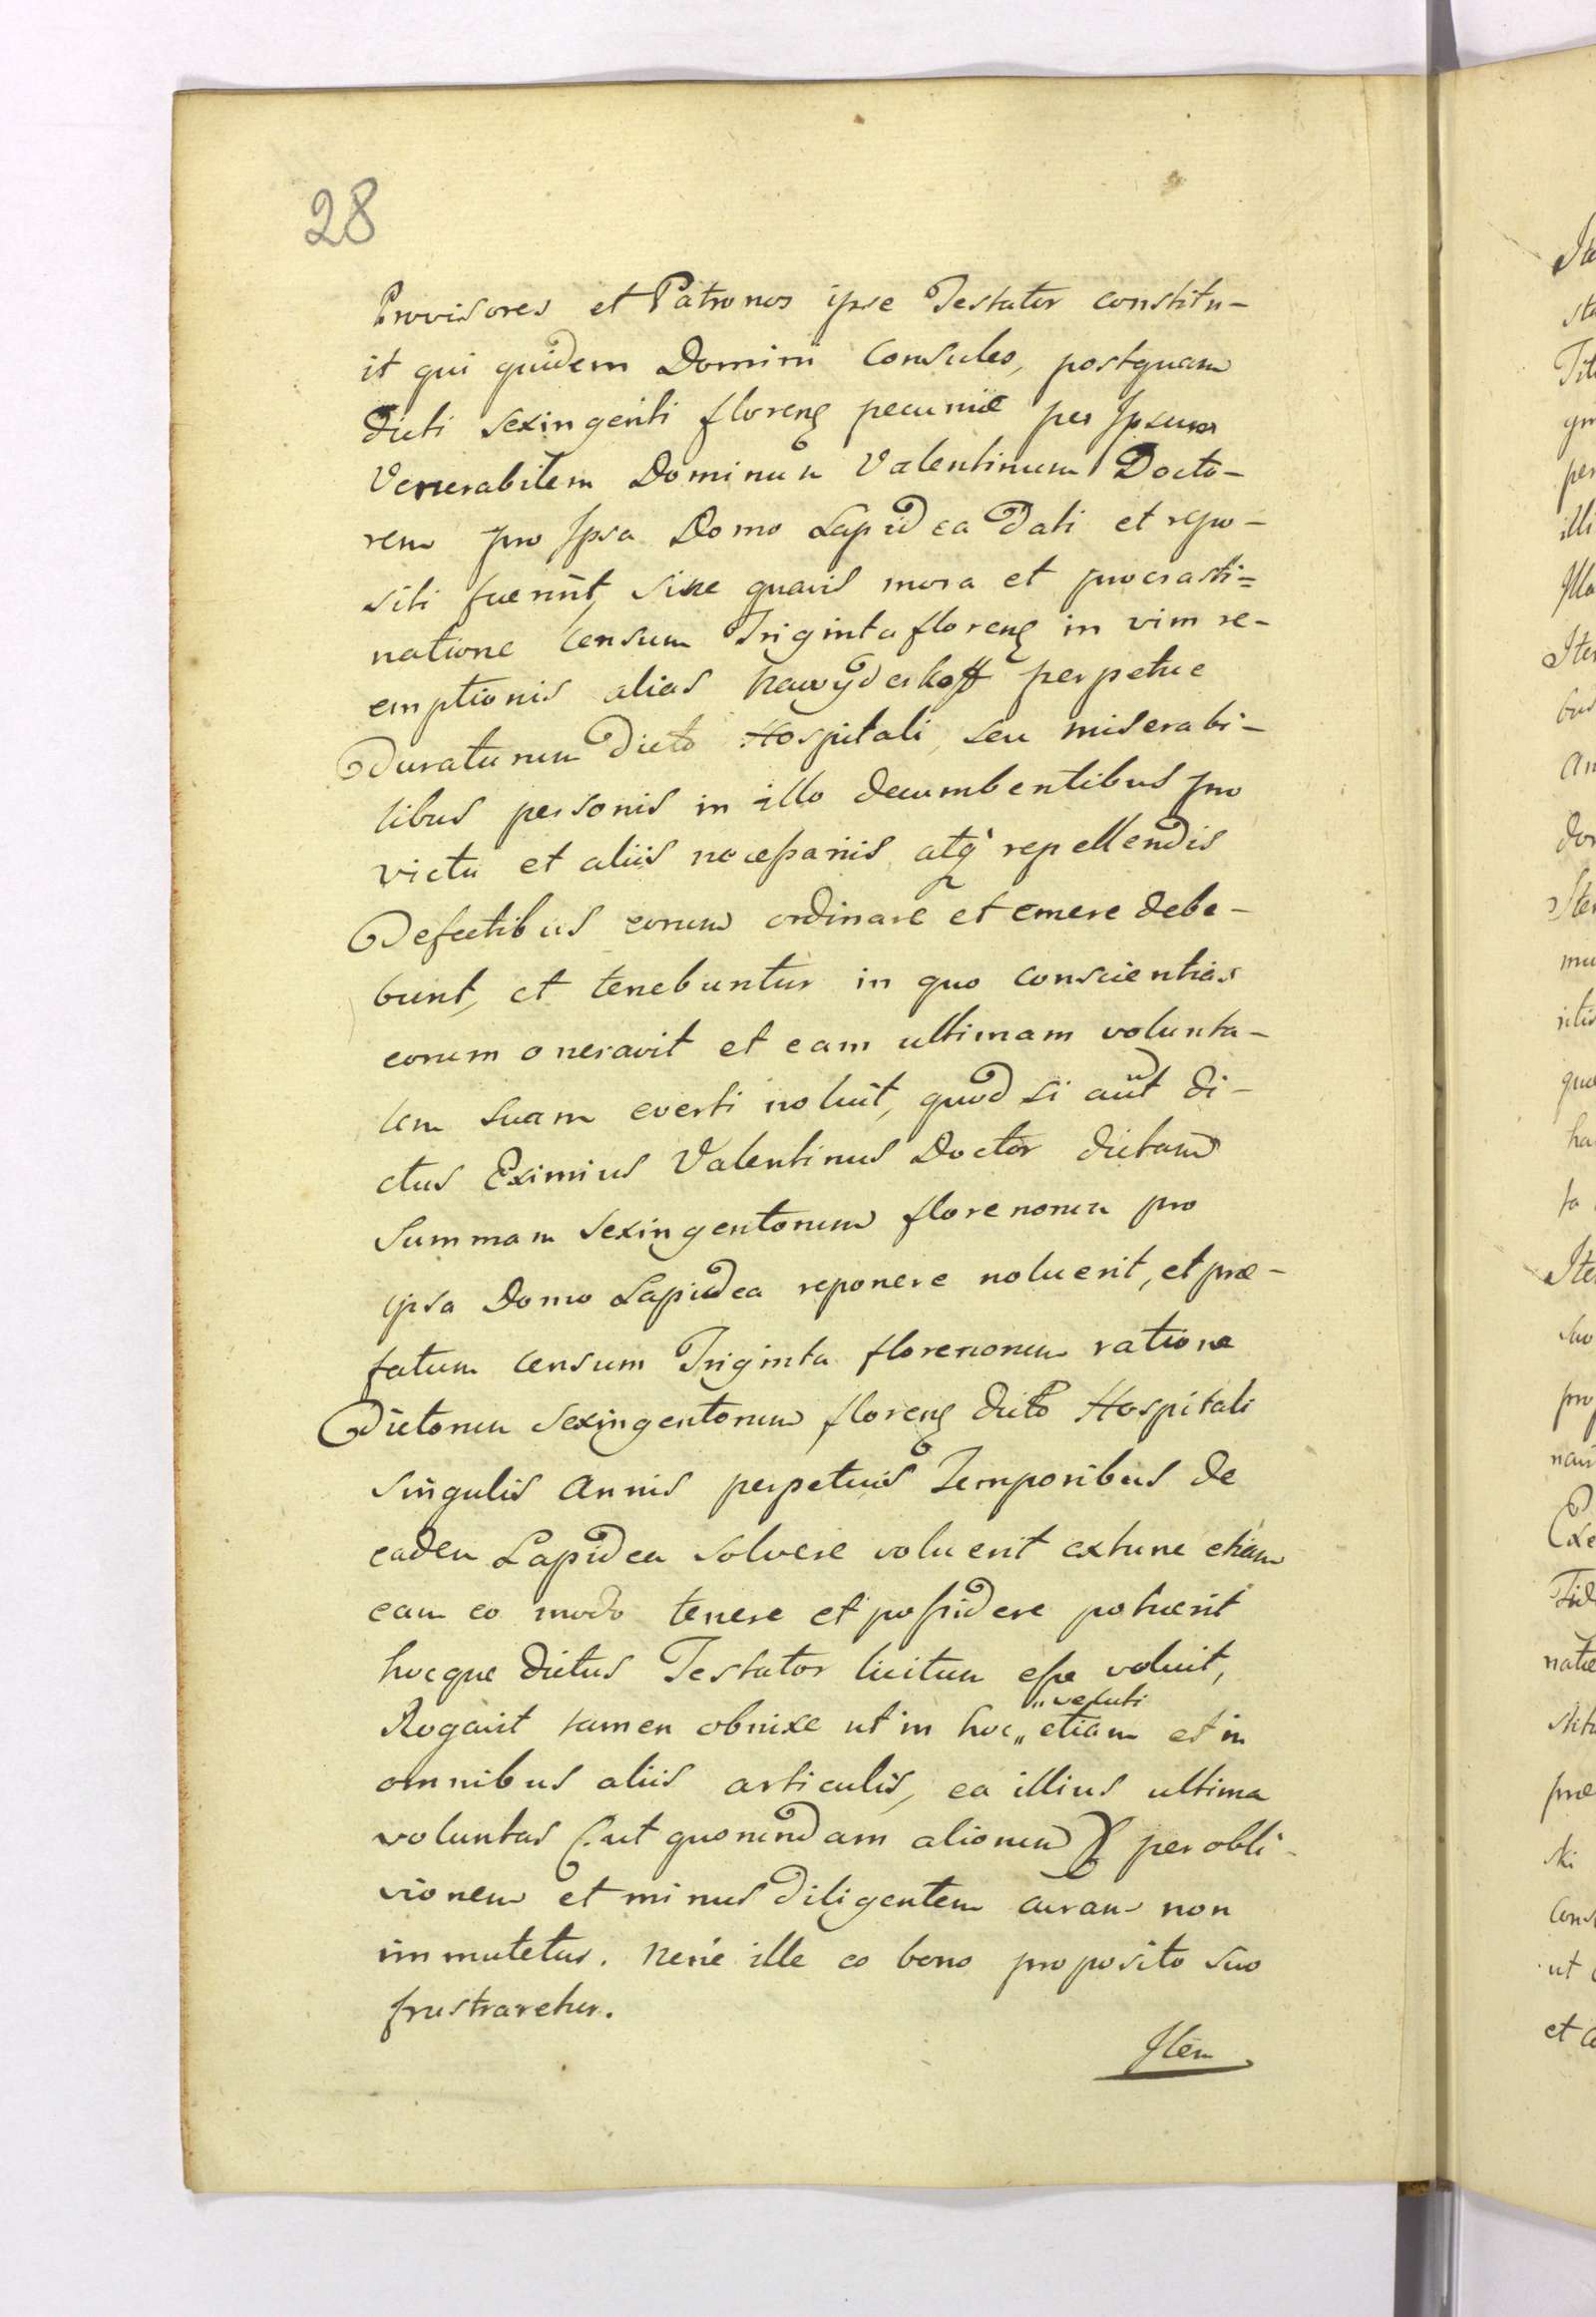 28
Provisores et Patronos ipse Testator constitu-
it qui quidem Domini Consules, postquam
dicti sexingenti florenę pecuniæ per Ipsum
Venerabilem Dominum Valentinum Docto-
rem pro Ipsa Domo Lapidea dati et repo-
siti fuerint, sine quavis mora et procrasti=
natione Censum Triginta florenę in vim re-
emptionis alias nawyderkoff perpetue
Duraturum dicto Hospitali, seu miserabi-
libus personis in illo decumbentibus pro
victu et aliis necessariis atq repellendis
Defectibus eorum ordinare et emere debe-
bunt, et tenebuntur in quo conscientias
eorum oneravit et eam ultimam volunta-
tem suam everti noluit, quod si aut di-
ctus Eximius Valentinus Doctor dictam
Summam sexingentorum florenorum pro
ipsa Domo Lapidea reponere noluerit, et præ-
fatum censum Triginta florenorum ratione
Dictorum sexingentorum florenę dicto Hospitali
singulis Annis perpetuis Temporibus de
eadem Lapidea solvere voluerit extunc etiam
eam eo modo tenere et possidere potuerit
hocque dictus Testator licitum esse voluit,
Rogavit tamen obnixe ut in hoc „ etiam et in
„ veluti
omnibus aliis articulis, ea illius ultima
voluntas (ut quorundam aliorum) per obli-
vionem et minus diligentem curam non
immutetur. nene ille eo bono proposito suo
frustraretur.
Item